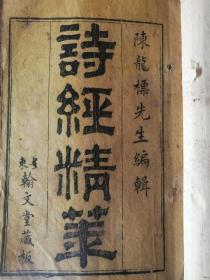 陳龍標先生編輯
詩經精華
粤東翰文堂藏板